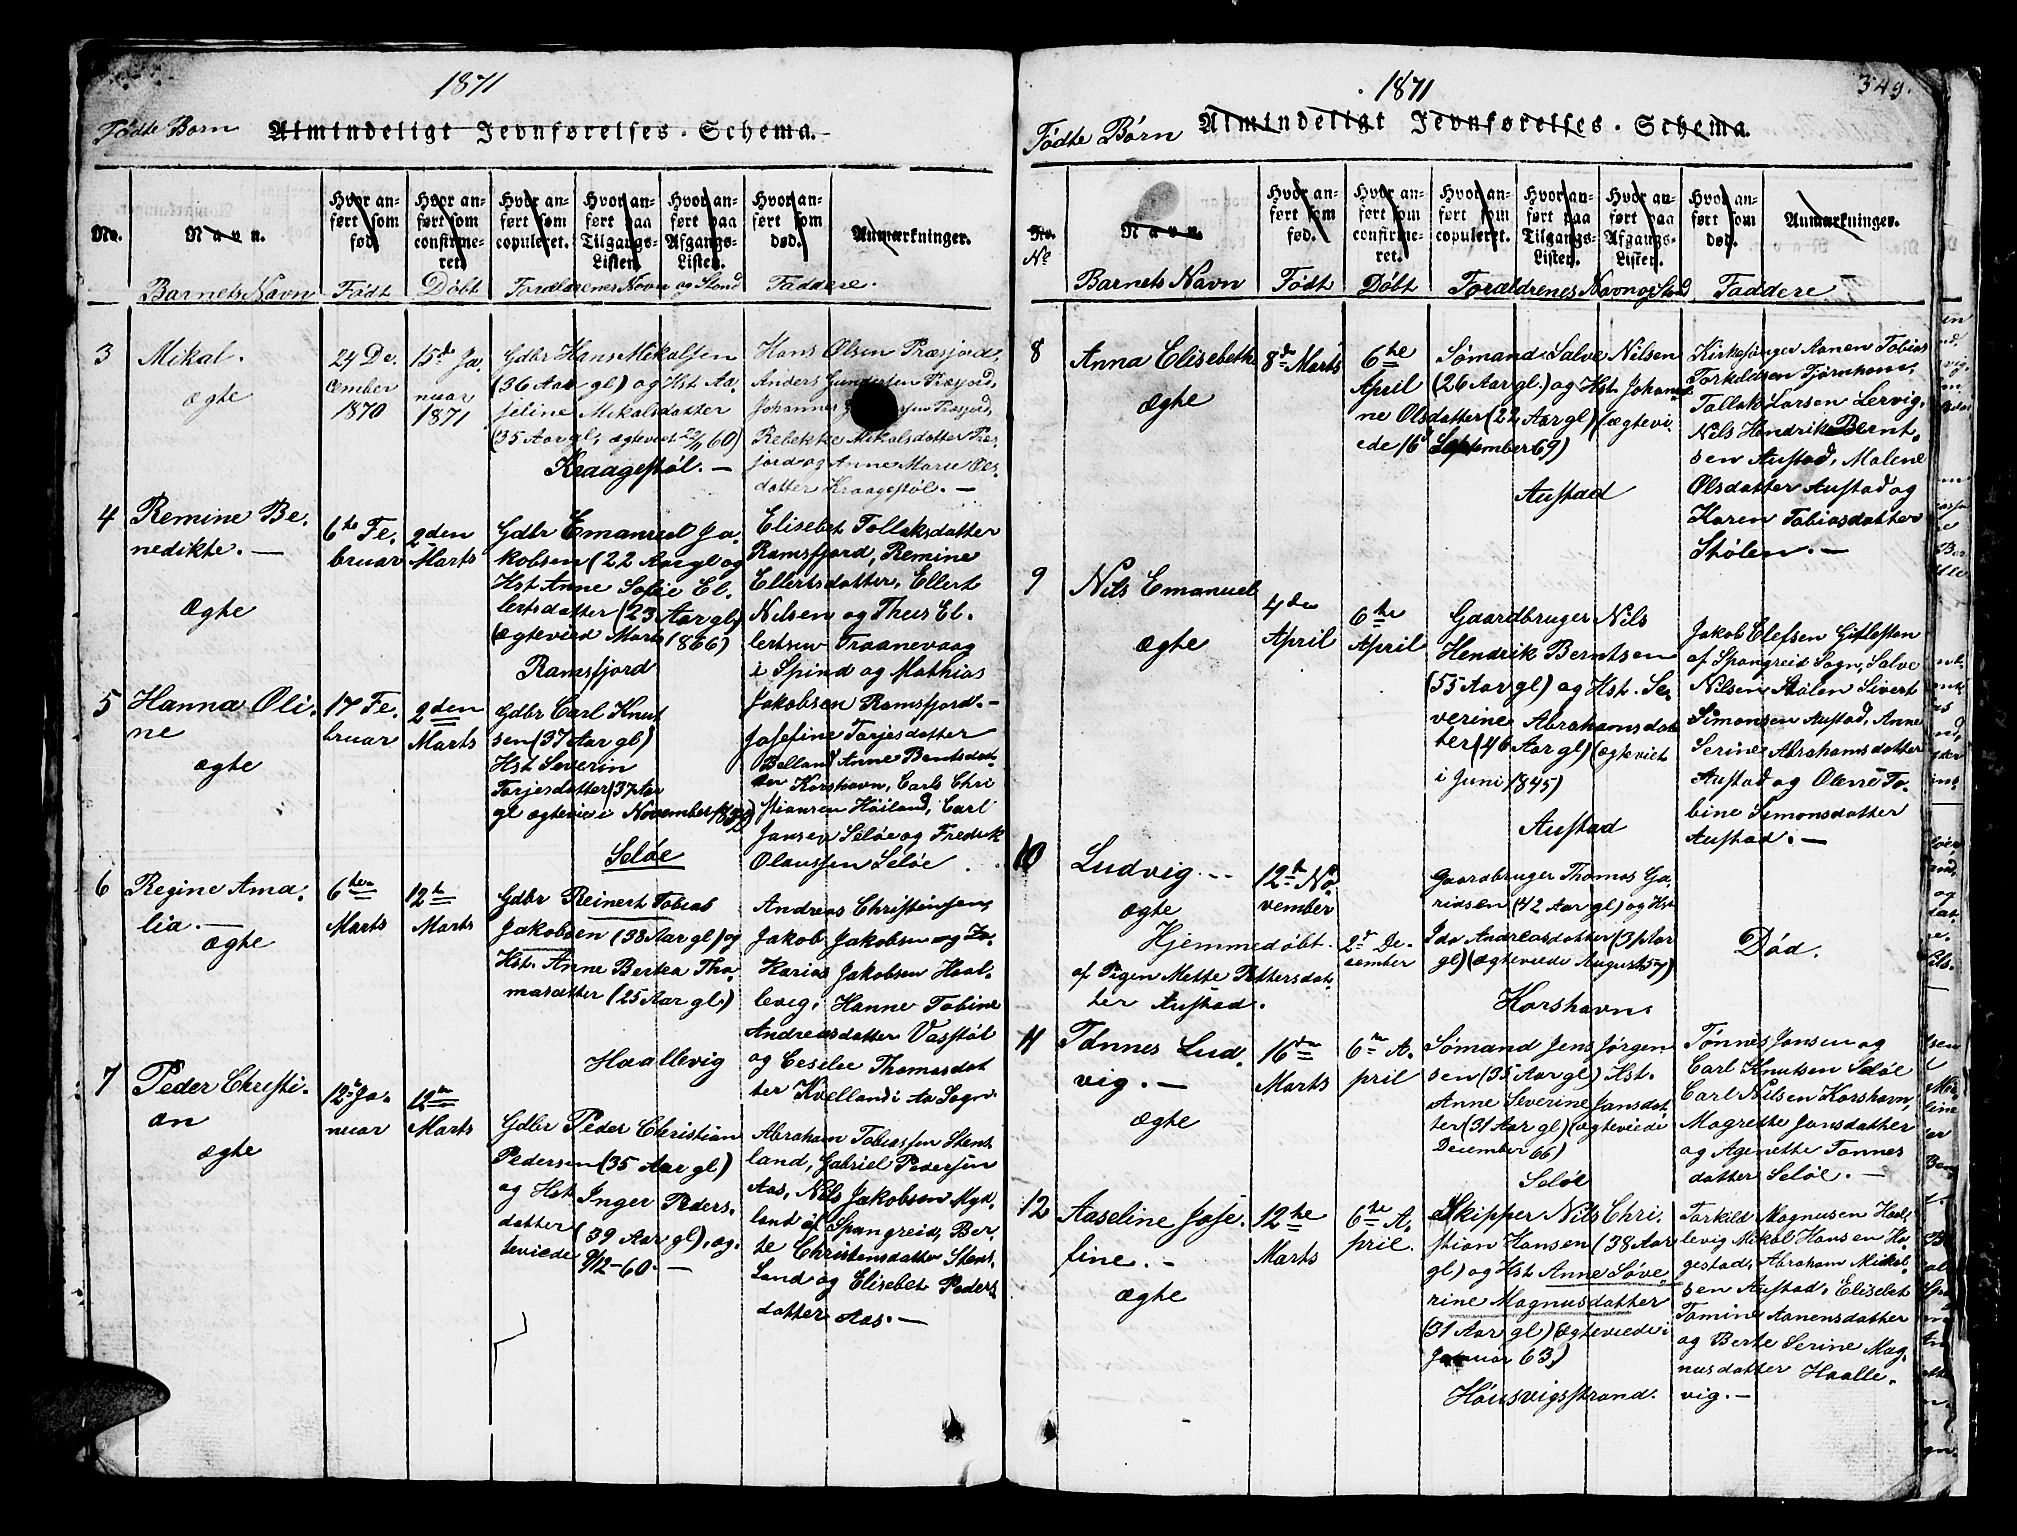 1871
Fødte Børn
Almindeligt Jevnførelses-Schema.
No.
Navn.
Hvor anført som født.
Hvor anført som confirmeret.
Hvor anført som copuleret.
Hvor anført paa Tilgangs-Listen.
Hvor anført paa Afgangs-Listen.
Hvor anført som død.
Anmærkninger.
Barnets Navn
Født
Døbt
Forældrenes Navn og Stand
Faddere.
3
Mikal.
ægte
24 De-
cember
1870
15d Ja-
nuar
1871
Gdbr Hans Mikalsen
(36 Aar gl) og Hst Aa-
jeline Mikalsdatter
(35 Aar gl, ægteviet 22/11 60)
Kraagestøl. —
Hans Olsen Præsjord,
Anders Gundersen Præsjord,
Johannes
Rebekke Mikalsdatter Præ-
jord og Anne Marie Ols-
datter Kraagestøl. —
4
Remine Be-
nedikte. —
Ægte
6te Fe-
bruar
2den
Marts
Gdbr Emanuel Ja-
kobsen (22 Aar gl og
Hst Anne Sofie El-
lertsdatter (23 Aar gl)
(ægtevied Marts 1866)
Ramsfjord
Elisebet Tollaksdatter
Ramsfjord, Remine
Ellertsdatter, Ellert
Nilsen og Theis El-
lertsen Traanevaag
i Spind og Mathias
Jakobsen Ramsfjord. —
5
Hanna Oli-
ne
ægte
17 Fe-
bruar
2den
Marts
Gdbr Carl Knut
sen (37 Aar gl)
Hst Severin
Torjesdatter (37 Aar
gl ægtevie i November
Seløe
Josefine Torjesdatter
Belland Anne Bentsdat-
ter Korshavn, Carls Chri
stiansen Høiland, Carl
Jansen Seløe og Fredrik
Olaussen Seløe
6
Regine Ama-
lia. —
ægte
6te
Marts
12te
Marts
Gdbr Reinert Tobias
Jakobsen (38 Aar gl) og
Hst. Anne Bertea Tho-
masdatter (25 Aar gl.)
Haallevig
Andreas Christensen,
Jakob Jakobsen og Za-
Karias Jakobsen Haal-
levig, Hanne Tobine
Andreasdatter Vasstøl
og Ceselee Thomasdat
ter Kvelland i Aa Sogn
7
Peder Christi-
an
ægte
12te Ja-
nuar
12te
Marts
Gdbr Peder Christian
Pedersen (35 Aar gl)
og Hst Inger Peders-
datter (39 Aar gl), æg-
teviede 9/12-60. —
Abraham Tobiassen Stens
land, Gabriel Pedersen
Aas, Nils Jakobsen Myk
land af Spangreid, Ber-
te Christensdatter Stens-
land og Elisebet Peders
datter Aas. —
1871
349.
Fødte Børn
Almindeligt Jevnførelses-Schema.
No.
Navn.
Hvor anført som fød.
Hvor anført som confirmeret.
Hvor anført som copuleret.
Hvor anført paa Tilgangs-Listen.
Hvor anført paa Afgangs-Listen.
Hvor anført som død.
Anmærkninger.
No
Barnets Navn
Født
Døbt
Forældrenes Navn og Stand
Faddere
8
Anna Elisebeth
ægte
8de Marts
6te
April
Sømand Salve Nilsen
(26 Aar gl.) og Hst Johan-
ne Olsdatter (22 Aar gl) (ægtevi-
ede 16d September 69)
Austad
Kirkesanger Aanen Tobias
Torkildsen Tjørnhom,
Tollak Larsen Lervig,
Nils Hendrik Bernt-
sen Austad, Malene
Olsdatter Austad og
Karen Tobiasdatter
Stølen. —
9
Nils Emanuel
ægte
4de
April
6te
April
Gaardbruger Nils
Hendrik Berntsen
(55 Aar gl) og Hst. Se-
verine Abrahamsdat
ter (46 Aar gl) (ægteviet
i Juni 1845)
Austad
Jakob Elefsen Gitlesten
af Spangreid Sogn, Salve
Nilsen Stølen Sivert
Simonsen Austad, Anne
Serine Abrahamsdatter
Austad og Olerre To-
bine Simonsdatter
Austad. —
10
Ludvig. --
ægte
Hjemmedøbt.
af Pigen Mette Pettersdat-
ter Austad.
12te No
vember
2d De-
cember
Gaardbruger Thomas Ga-
ridsen (42 Aar gl) og Hst
Ida Andreasdatter (31 Aar
gl) (ægteviede August 57)
Korshavn.
Død.
11
Tønnes Lud-
vig. —
ægte
16de
Marts
6te A-
pril
Sømand Jens Jørgen
sen (35 Aar gl) Hst.
Anne Severine Jansdat-
ter (31 Aar gl) (ægteviede
December 66)
Seløe
Tønnes Jansen og
Carl Knutsen Seløe
Carl Nilsen Korshavn,
Magrette Jansdatter
og Agenette Tønnes
datter Seløe. —
12
Aaseline Jose-
fine. —
ægte
12te
Marts
6te A-
pril.
Skipper Nils Chri-
stian Hansen (38 Aar
gl) og Hst Anne Søve-
rine Magnusdatter
(31 Aar gl) (ægteviede i
Januar 63)
Høusvigstrand.
Torkild Magnusen Haal-
levig Mikal Hansen Hø-
gestad, Abraham Mikal-
sen Austad, Elisebet
Tomine Aanensdatter
og Berte Serine Mag-
nusdatter Haalle-
vig. —